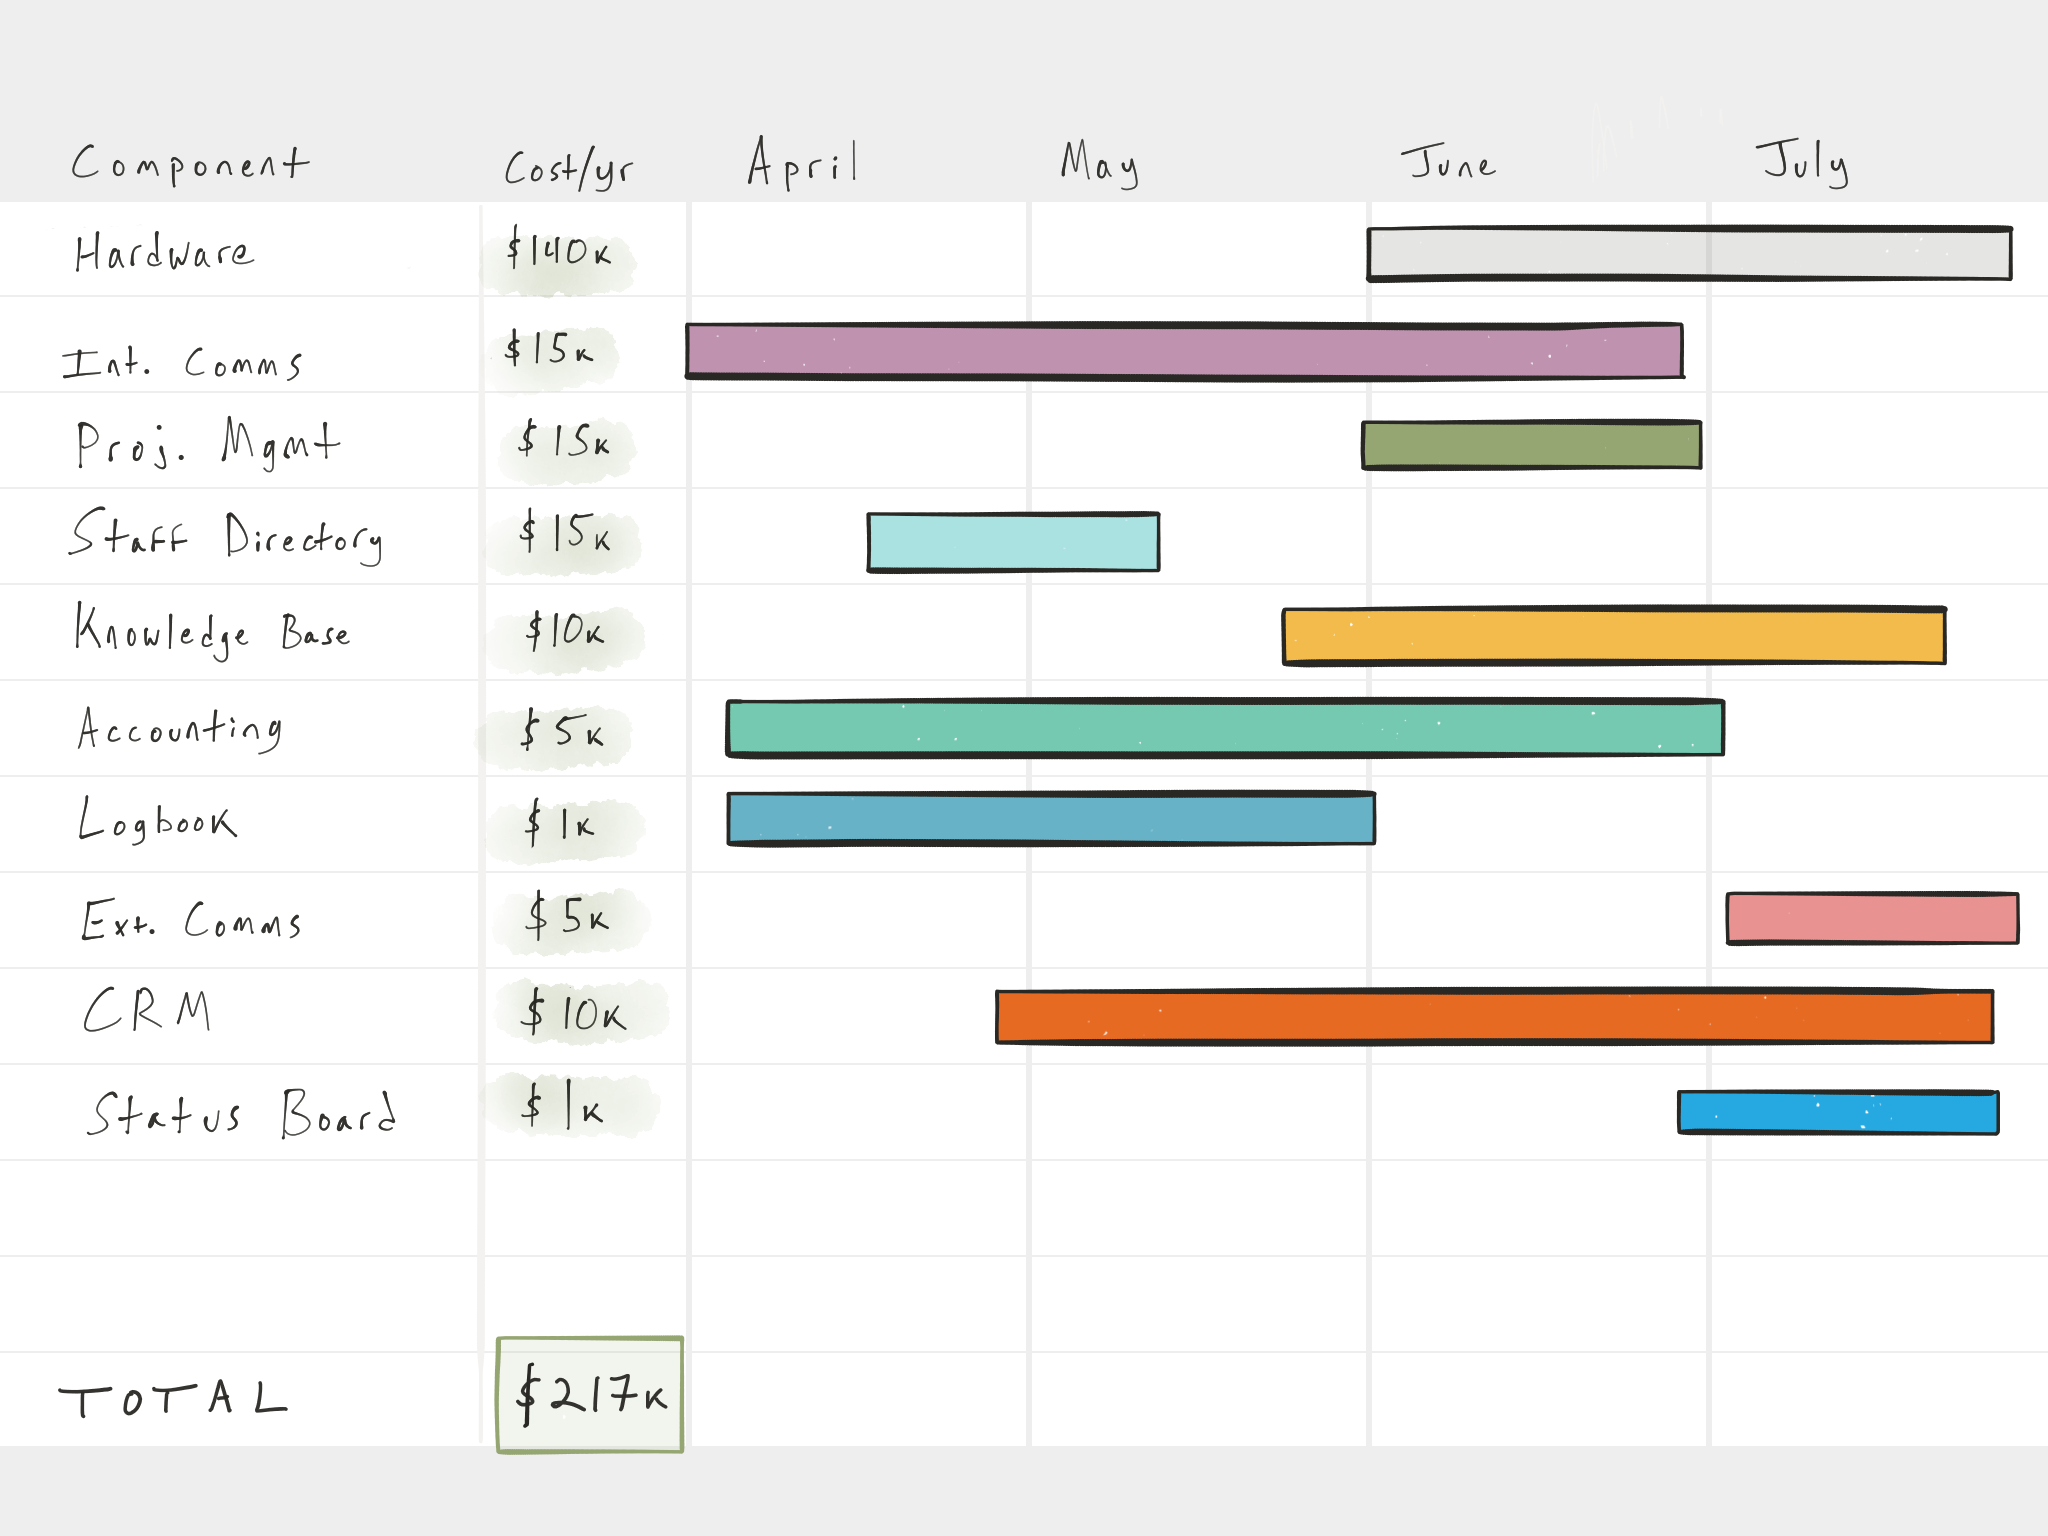 Component Cost/yr April May June July
Hardware $140k
Int. Comms $15k
Proj. Mgmt $15k
Staff Directory $15k
Knowledge Base $10k
Accounting $5k
Logbook $1k
Ext. Comms $5k
CRM $10k
Status Board $1k
TOTAL $217k